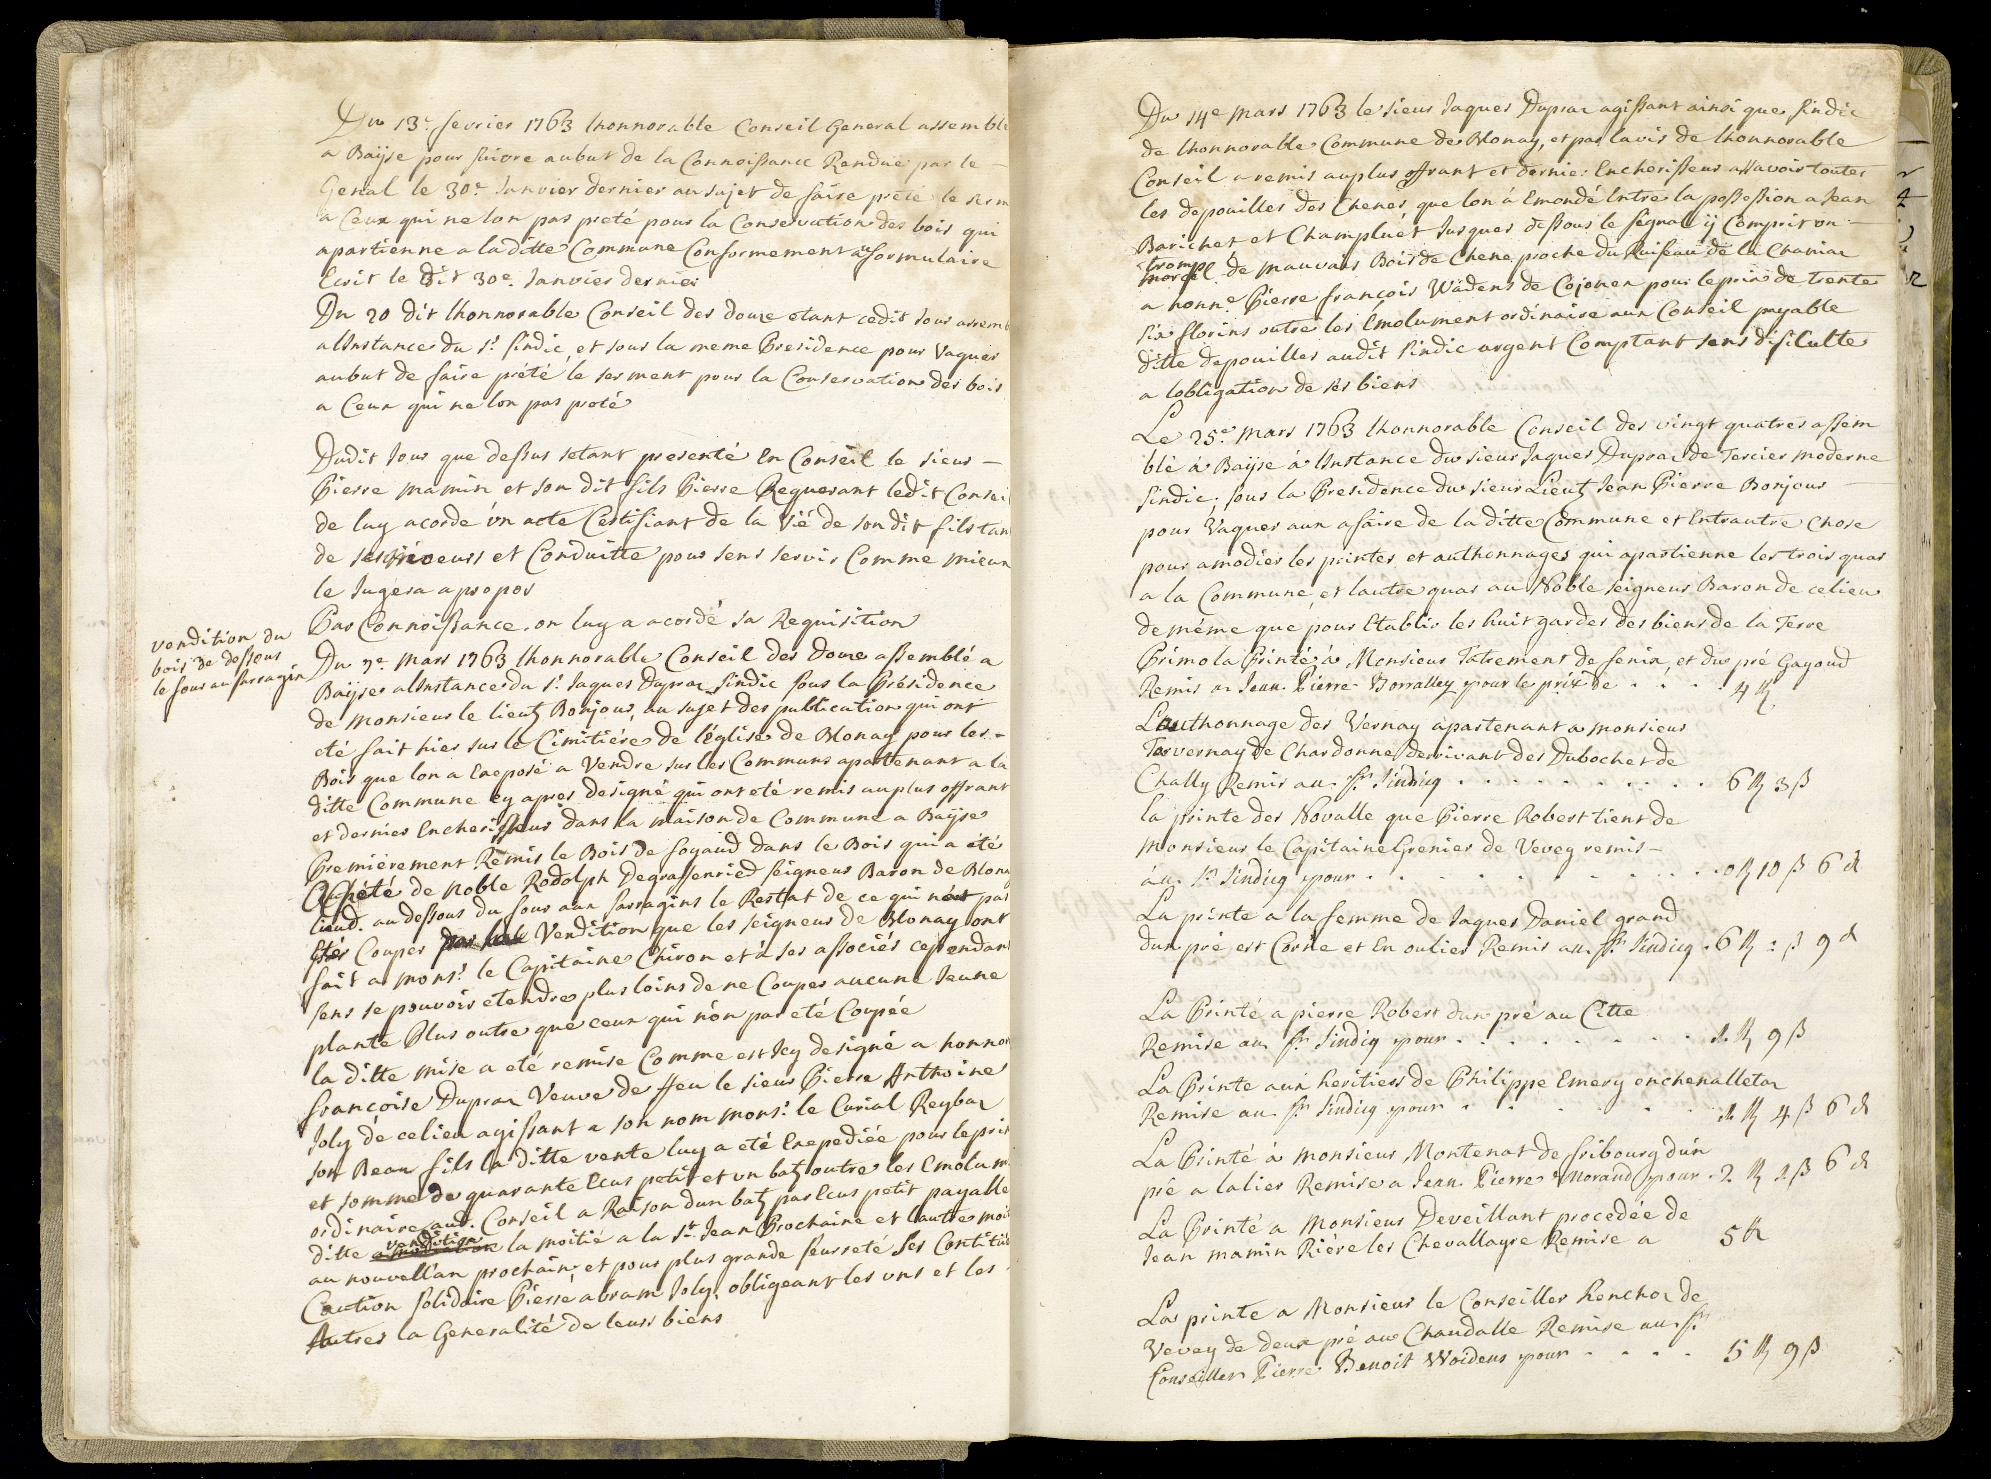 Du 13e. fevrier 1763 lhonnorable Conseil General assemblé
a Baÿse pour suivre aubut de la Connoissance Rendue par le
Genal le 30e. Janvier dernier au sujet de faire prété le serm
a Ceux qui ne lon pas preté pour la Conservation des bois qui
apartienne a la ditte Commune Conformement au formulaire
Ecrit le dit 30e. Janvier dernier
Du 20 dit lhonnorable Conseil des douze etant cedit Jour assemb
alInstance du sr. sindic, et sous la meme Presidence pour Vaquer
aubut de faire prété le serment pour la Conservation des bois
a Ceux qui ne lon pas preté
Dudit Jour que dessus setant presenté En Conseil le sieur
Pierre mamin et son dit fils Pierre Requerant ledit Consei
de luy acordé un acte Certifiant de la vié de son dit fils tan
de ses mœurs et Conduitte pour sens servir Comme mieux
le Jugera apropos
Par Connoissance. on luy a acordé sa Requisition
vendition du
bois de dessous
le four au sarragin
Du 7e. mars 1763 lhonnorable Conseil des Douze assemblé a
Baÿse alInstance du sr. Jaques Dupraz sindic sous la Présidence
de monsieur le lieut Bonjour, au sujet des publication qui ont
eté fait hier sur le Cimitiére de léglise de Blonay pour les
Bois que lon a Exeposé a Vendre sur les Communs apartenant a la
ditte Commune cy apres designé qui ont été remis au plus offrant
et dernier Encherisseur dans la maison de Commune a Baÿse
Premiérement Remis le Bois de foyaud dans le Bois qui a été
Acheté de noble Rodolph Degraffenried seigneur Baron de Blonay
lieud. au dessous du four aux sarragins le Restat de ce qui nest pas
Etér Couper Vendition que les seigneur de Blonay ont
fait a monsr. le Capitaine Chiron et à ses associés cependant
sens se pouvoir etendre plus loins de ne Couper aucune Jeune
plante Plus outre que ceux qui nón pas eté Coupée
la ditte mise a eté remise Comme est Icy designé a honnor
francoise Dupraz Veuve de ffeu le sieur Pierre Anthoine
Joly de celieu agissant a son nom monsr. le Curial Reybaz
son Beau fils la ditte vente luy a eté Exepediée pour le prix
et somme de quarante Ecus petit et un batz outre les Emolum.
ordinaire aud. Conseil a Raison dun batz par Ecus petit payable
ditte vendition la moitié a la St. Jean Prochaine et lautre moit
au nouvellan prochain, et pour plus grande seurreté ses Contitué
Caution solidaire Pierre abram Joly, obligeant les uns et les
Autres la Generalité de leurs biéns
Du 14e mars 1763 le sieur Jaques Dupraz agissant ainsi que sindic
de lhonnorable Commune de Blonay, et par lavis de lhonnorable
Conseil a remis auplus offrant et dernier Encherisseur assavoir toutes
les depouilles des Chenes que lon à Emondé Entre la possession a Jean
Barichet et Champluét Jusques dessous le signal ÿ Comprit un
tromp
de mauvais Bois de Chene proche du Ruiseau de la Chaniaz
a honne. Pierre françois Wädens de Cojonex pour le prix de trente
six florins outre les Emolument ordinaire aux Conseil payable
ditte depouilles audit sindic argent Comptant sens dificulte
a lobligation de ses biens
Le 25e. mars 1763 lhonnorable Conseil des vingt quatres assem
blé à Baÿse à lInstance du sieur Jaques Dupraz de Tercier moderne
sindic, sous la Presidence du sieur Lieut Jean Pierre Bonjour
pour Vaquer aux afaire de la ditte Commune et Entrautre chose
pour amodier les printes et authonnages qui apartienne les trois quar
a la Commune, et lautre quar au Noble seigneur Baron de celieu
de méme que pour Etablir les huit gardes des biens de la Terre
Primo la Printé à Monsieur Tatrement de fenix, et du pré Gagoud
Remis a Jean Pierre Borralley pour le prix de . . . . 4 ff
Lauthonnage des Vernay apartenant a monsieur
Tavernay de Chardonne derivant des Dubochet de
Chally Remis au Sr. Sindicq . . . . . . . . 6 ff 3 ß
la printe des Novalle que Pierre Robert tient de
monsieur le Capitaine Grenier de Vevey remis
áu. Sr. Sindicq pour . . . . . . . . . 0 ff 10 ß 6 d
La printe a la femme de Jaques Daniel grand
dun pré est Corne et En oulier Remis au Sr. Sindicq . 6 ff : ß 9 d
La Printé a pierre Robert dun pré au Citte
Remise au Sr. Sindicq pour . . . . . . . 1 ff 9 ß
La Printe aux heritiers de Philippe Emery enchenalletaz
Remise au. Sr. Sindicq pour . . . . . . 1 ff 4 ß 6 d
La Printé à monsieur Montenat de fribourg dún
pré a lalier Remise a Jean Pierre Morand pour . 2 ff 1 ß 6 d
La Printé a Monsieur Deveillant procedée de
Jean mamin Riére les Chevallayre Remise a 5 ff
La printe a Monsieur le Conseiller henchoz de
Vevey de deux pré au Chandalle Remise au Sr.
Conseiller Pierre Benoit Woidens pour . . . . 5 ff 9 ß